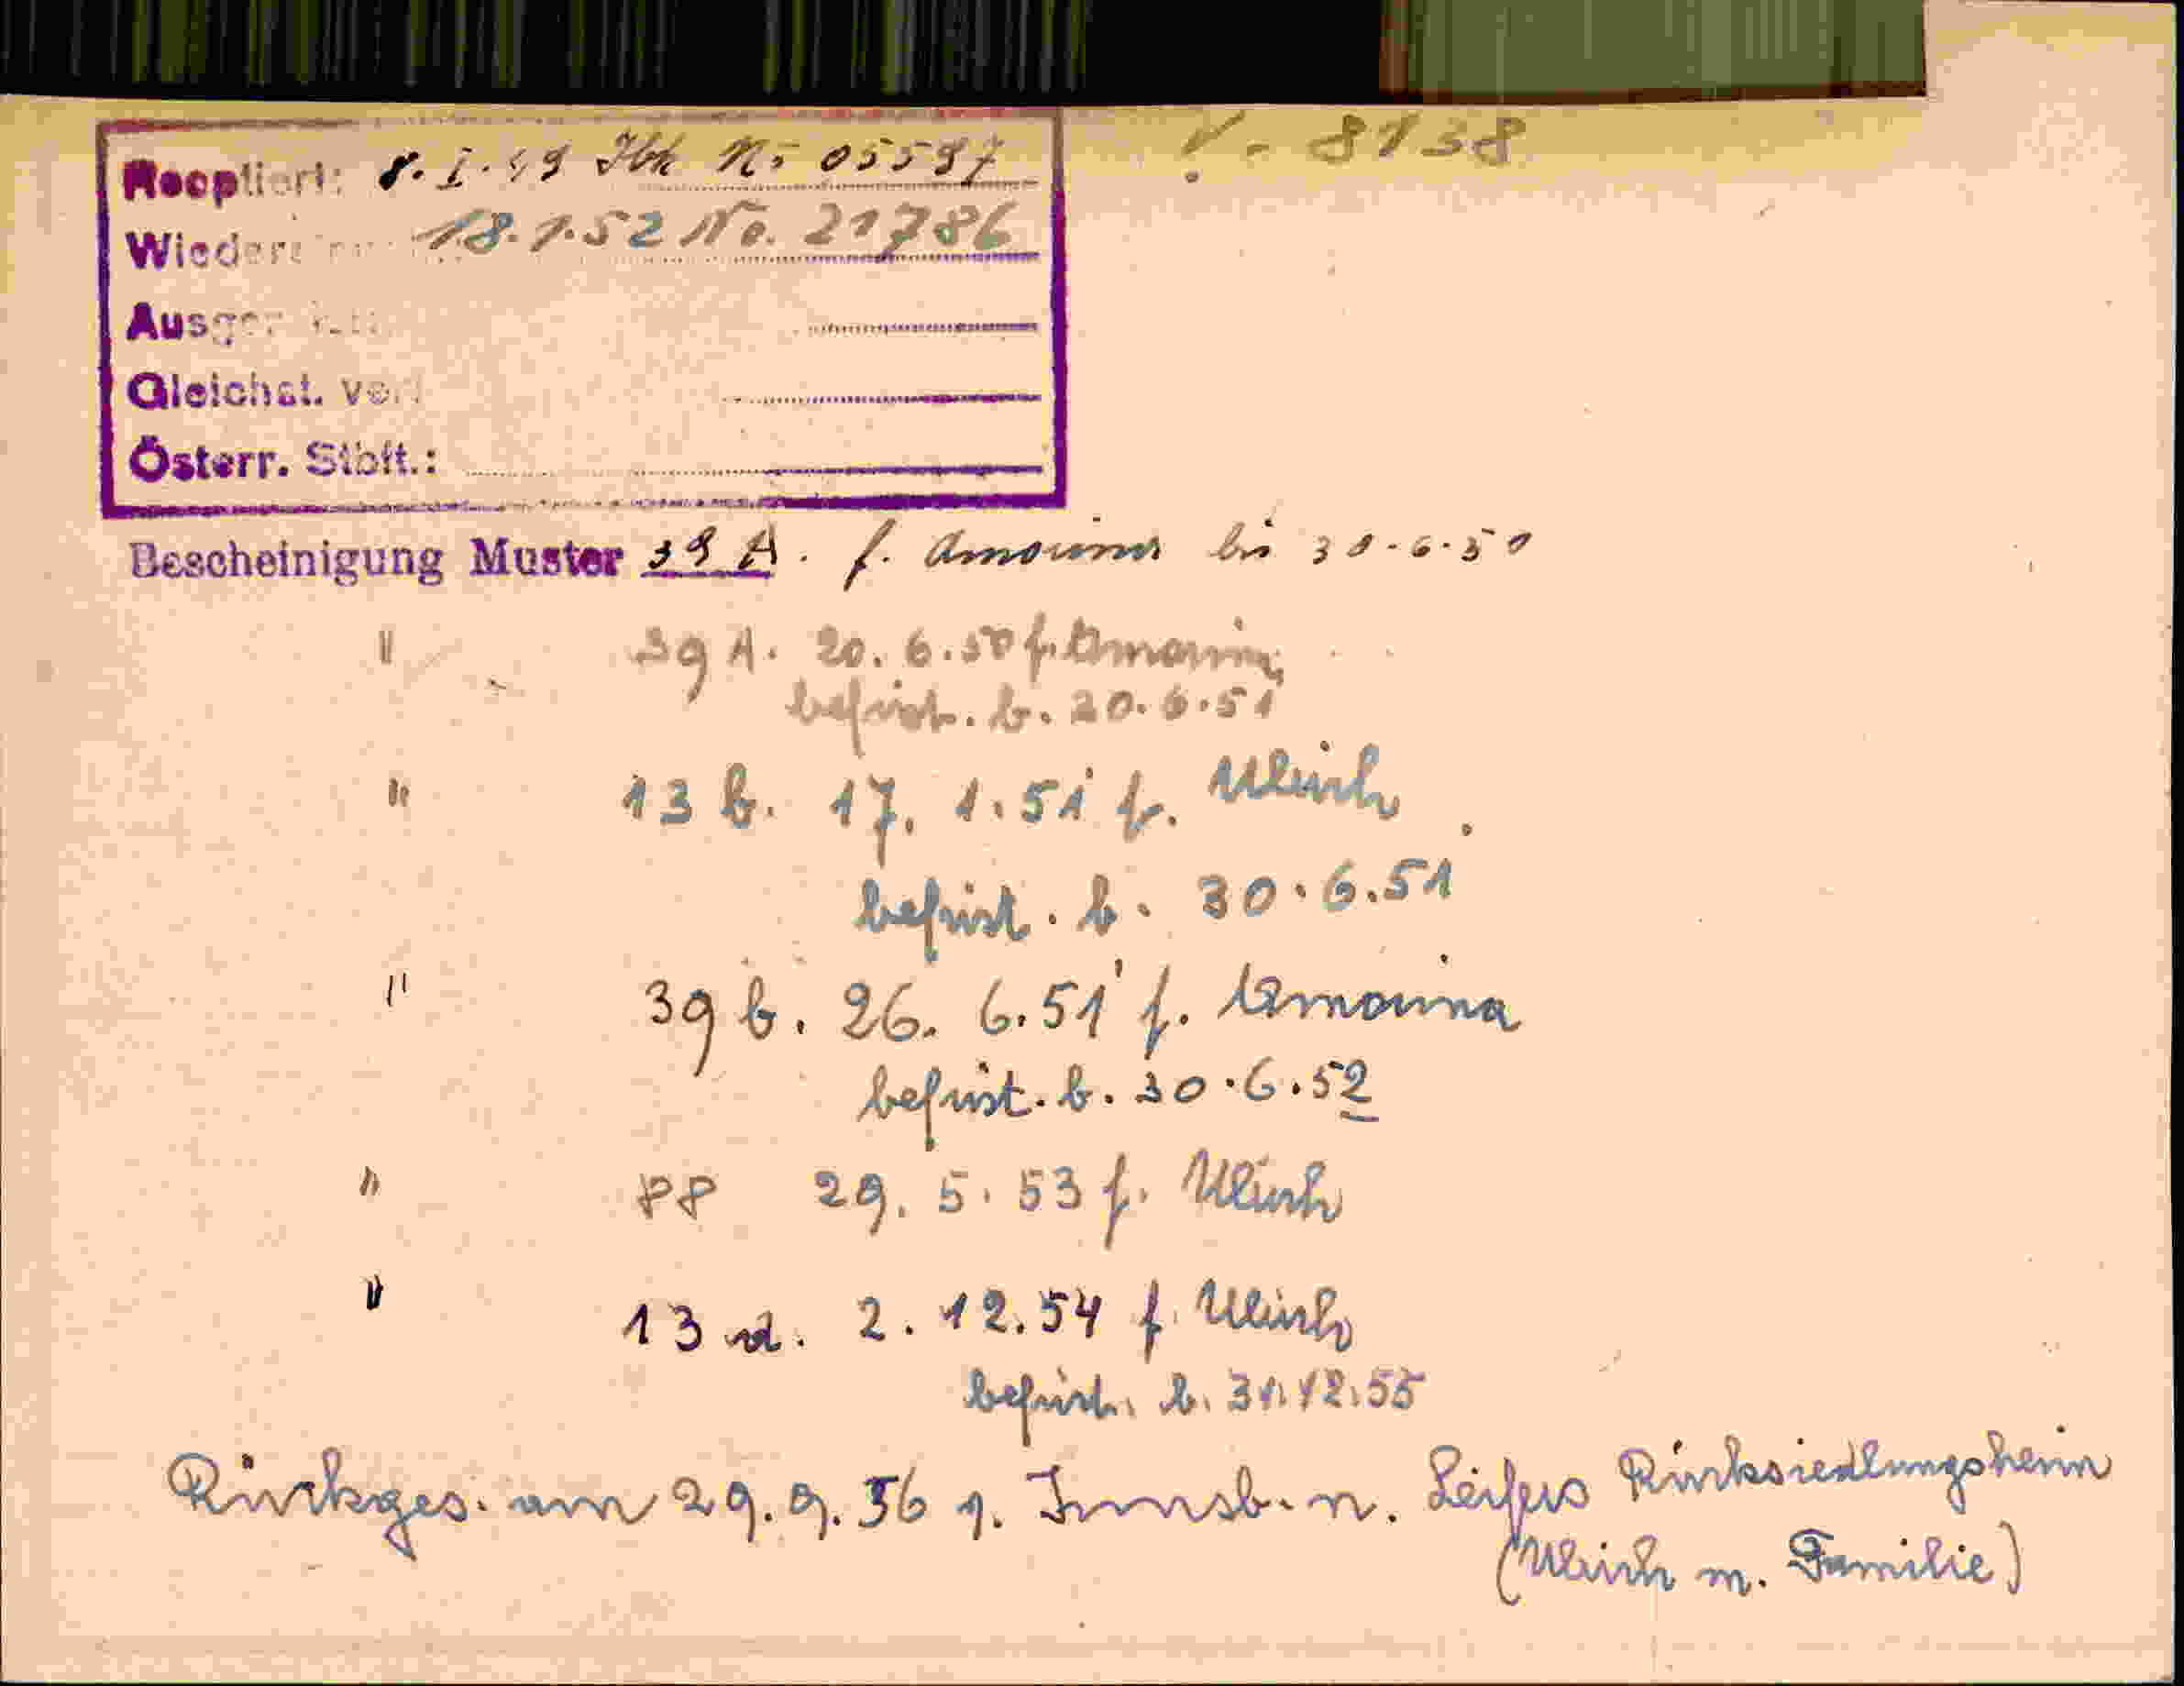 V. 8138
Reoptiert: 8.I.49 Ibk Nr 05597
18.1.52 No. 21786
Gleichst. verl
Österr. Stbft.:
Bescheinigung Muster 39 A. f. bis 30.6.50
" 39 A. 20.6.50 f. Amorina
befrist. b. 20.6.51
" 13 b. 17. 1.51 f. Ulrich
befrist. b. 30.6.51
" 39 b. 26. 6.51 f. Amorina
befrist. b. 30.6.52
" 88 29. 5. 53 f. Ulrich
" 13 d. 2.12.54 f. Ulrich
befrist. b. 31.12.55
Rückges. am 29.9.56 v. Innsb. n. Leifers Rücksiedlungsheim
(Ulrich m. Familie)